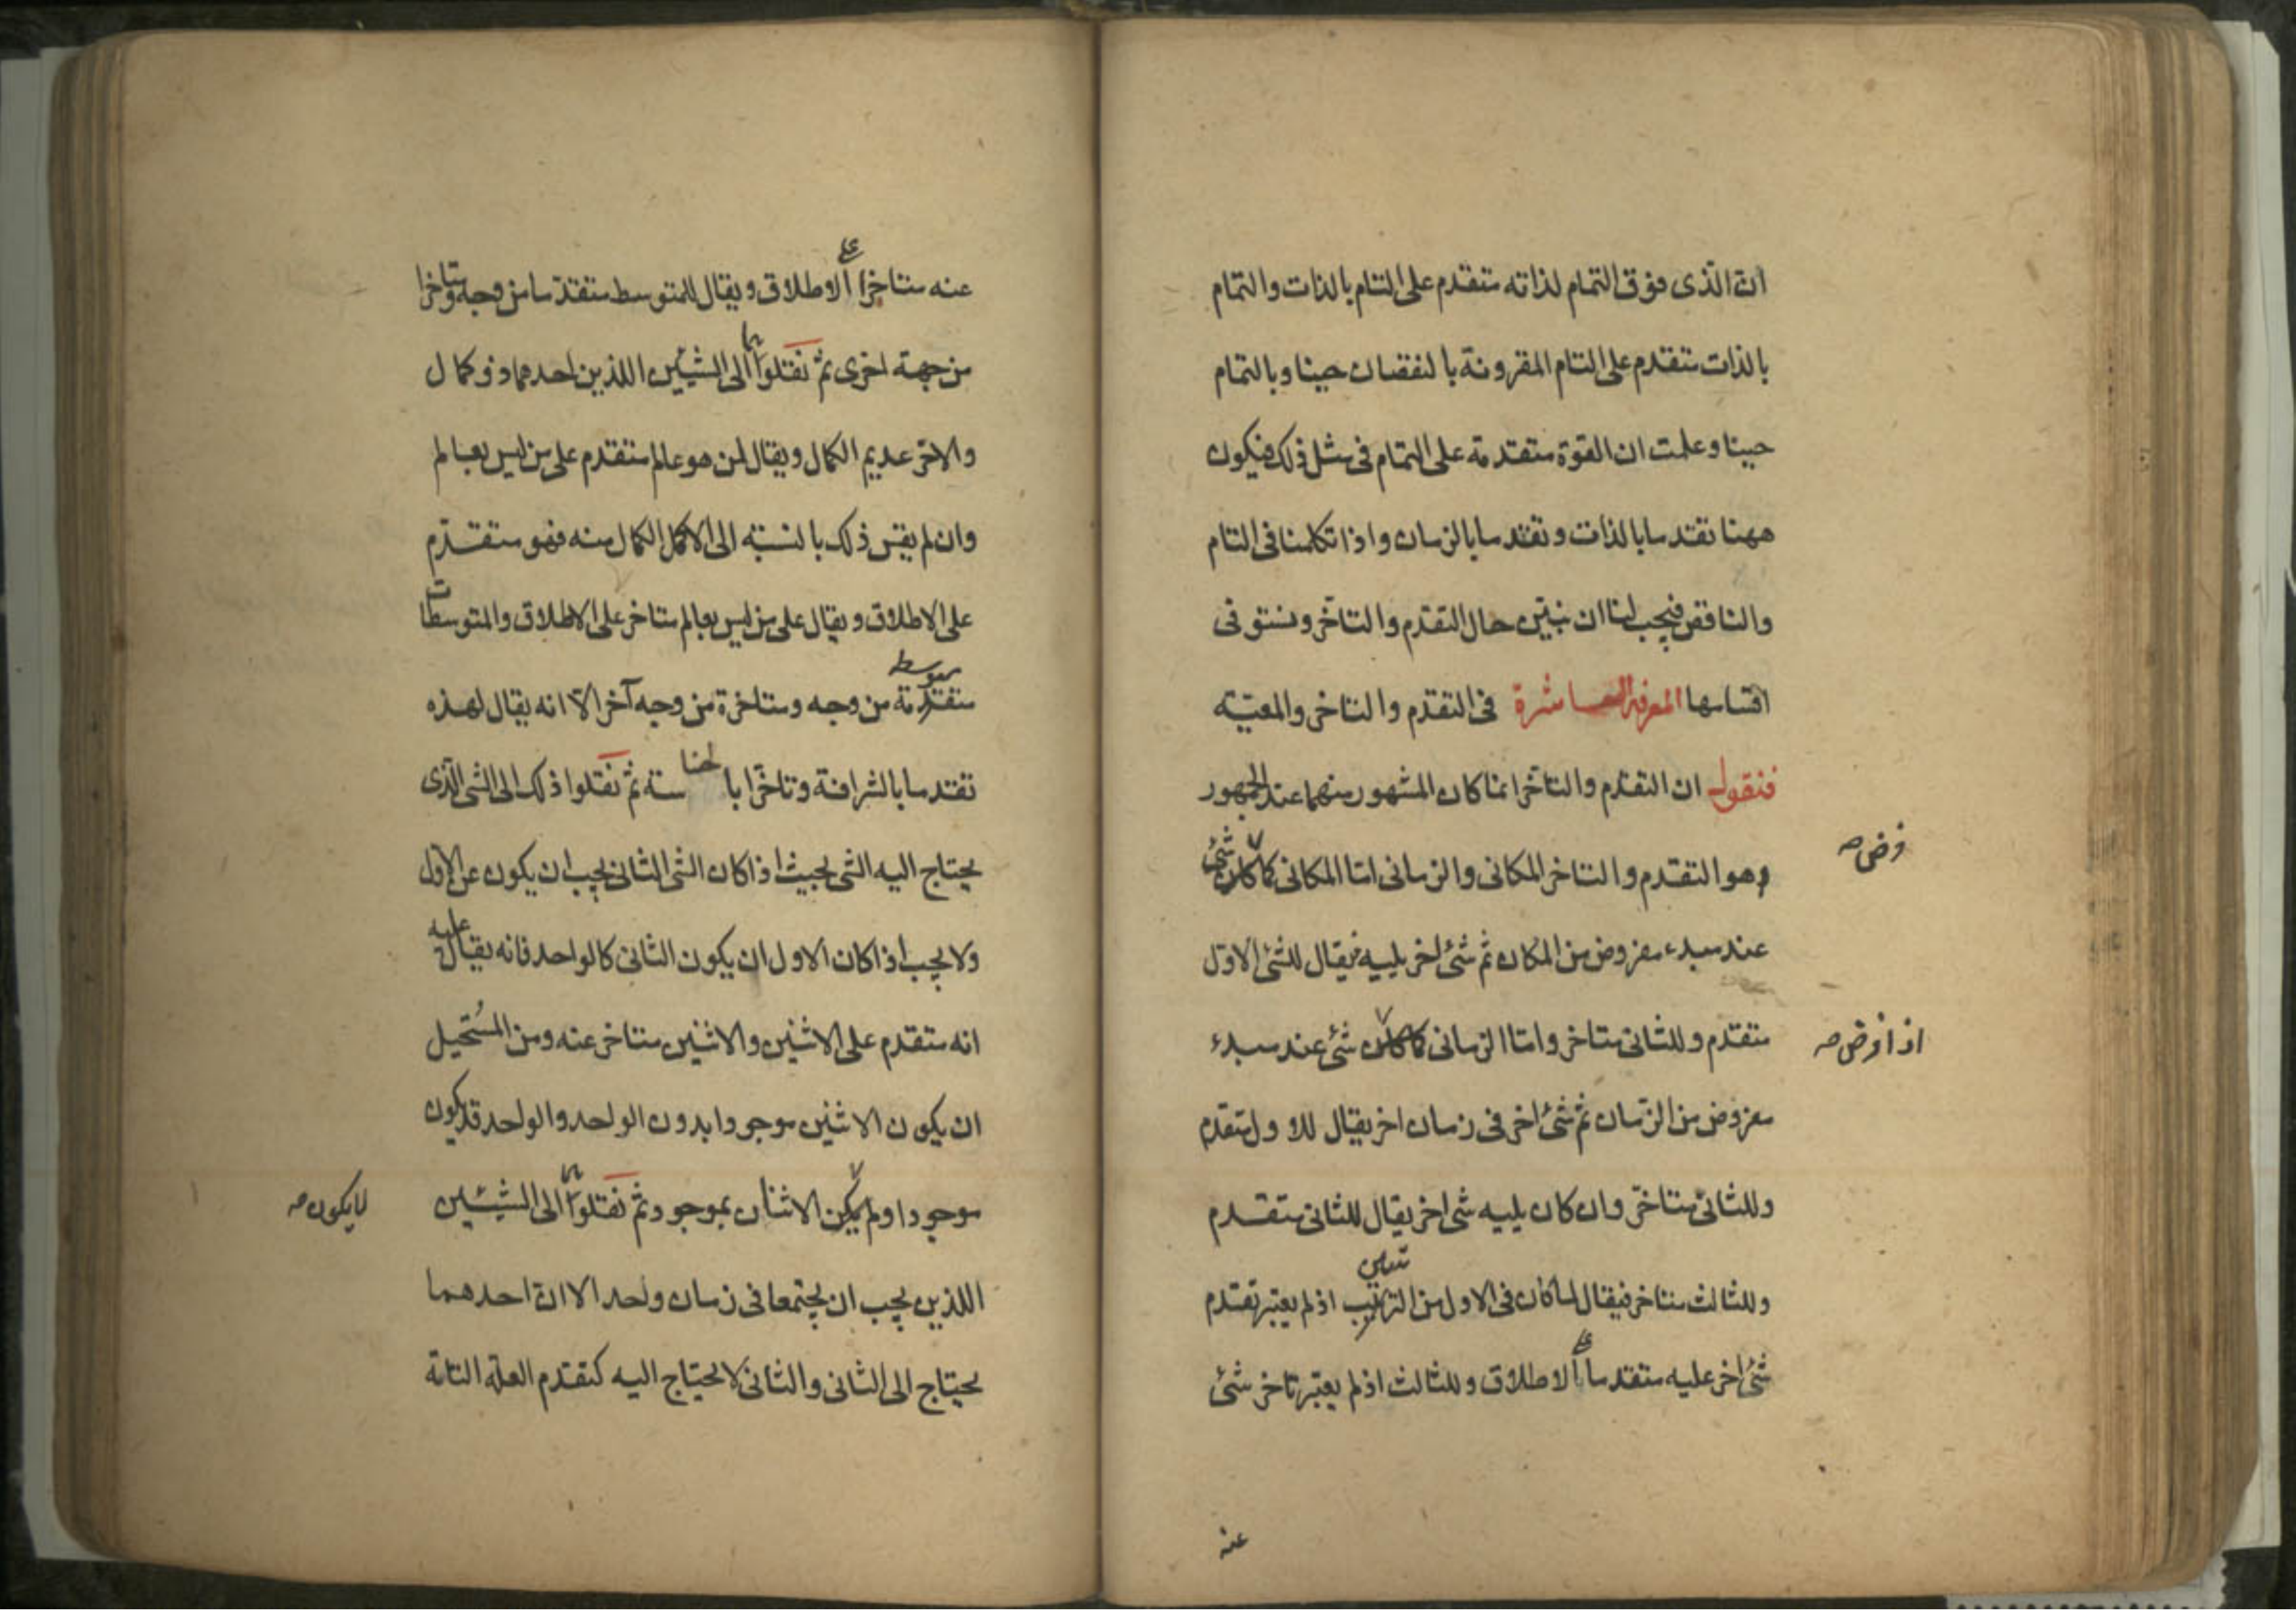 ان الذى فوق التمام لذاته متقدم على التام بالذات والتمام
بالذات متقدم على التام المقرونة بالنقصان حينا وبالتمام
حينا وعلمت ان القوة متقدمة على التمام فى مثل ذلك فيكون
ههنا تقدما بالذات وتقدما بالزمان واذا تكلمنا فى التام
والناقص فيجب لنا ان نبيّن حال التقدم والتاخّر ونستوفى
اقسامها المعرفة العاشرة فى التقدم والتاخر والمعيّه
فنقول ان التقدم والتاخّر انما كان المشهور منهما عند الجمهور
وهو التقدم والتاخر المكانى والزمانى امّا المكانى كما كان شئ
فرض صه
عند مبدء مفروض من المكان ثم شئ اخر يليه فيقال للشئ الاوّل
متقدم وللثانى متاخر وامّا الزمانى كما كان شئ عند مبدء
اذا فرض صه
مفروض من الزّمان ثم شئ اخر فى زمان اخر يقال للاول متقدم
وللثانى متاخّر وان كان يليه شئ اخر يقال للثانى متقدم
وللثالث متاخر فيقال لما كان فى الاول من الترتيب اذ لم يعتبر تقدم
شئ اخر عليه متقدما على الاطلاق وللثالث اذ لم يعتبر تاخر شئ
عنه
عنه متاخرا على الاطلاق ويقال للمتوسط متقدّما من وجه ومتاخرا
من جهة اخرى ثم نقلوا الى الشيئين اللذين احدهما ذو كمال
والاخر عديم الكمال ويقال لمن هو عالم متقدم على من ليس بعالم
وان لم يقس ذلك بالنسبة الى الاكمل الكمال منه فهو متقدّم
على الاطلاق ويقال على من ليس بعالم متاخر على الاطلاق والمتوسطات
متوسط
متقدمة من وجه ومتاخرة من وجه آخر الّا انه يقال لهذه
تقدما بالشرافة وتاخّرا بالخساسة ثم نقلوا ذلك الى الشئ الّذى
يحتاج اليه الشئ بحيث اذا كان الشئ الثانى يجب ان يكون عن الاول
ولا يجب اذا كان الاول ان يكون الثانى كالواحد فانه يقال عليه
انه متقدم على الاثنين والاثنين متاخر عنه ومن المُستحيل
ان يكون الاثنين موجودا بدون الواحد والواحد قد يكون
موجودا ولم يكن الاثنان بموجود ثم نقلوا الى الشيئين
لا يكون صه
اللذين يجب ان يجتمعا فى زمان واحد الا ان احدهما
يحتاج الى الثانى والثانى لا يحتاج اليه كتقدم العلة التامة